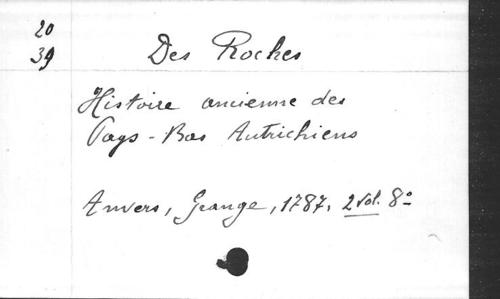 20
39
Des Roches
Histoire ancienne des
Pays-Bas Autrichiens
Anvers, Grange, 1787. 2 vol. 8º